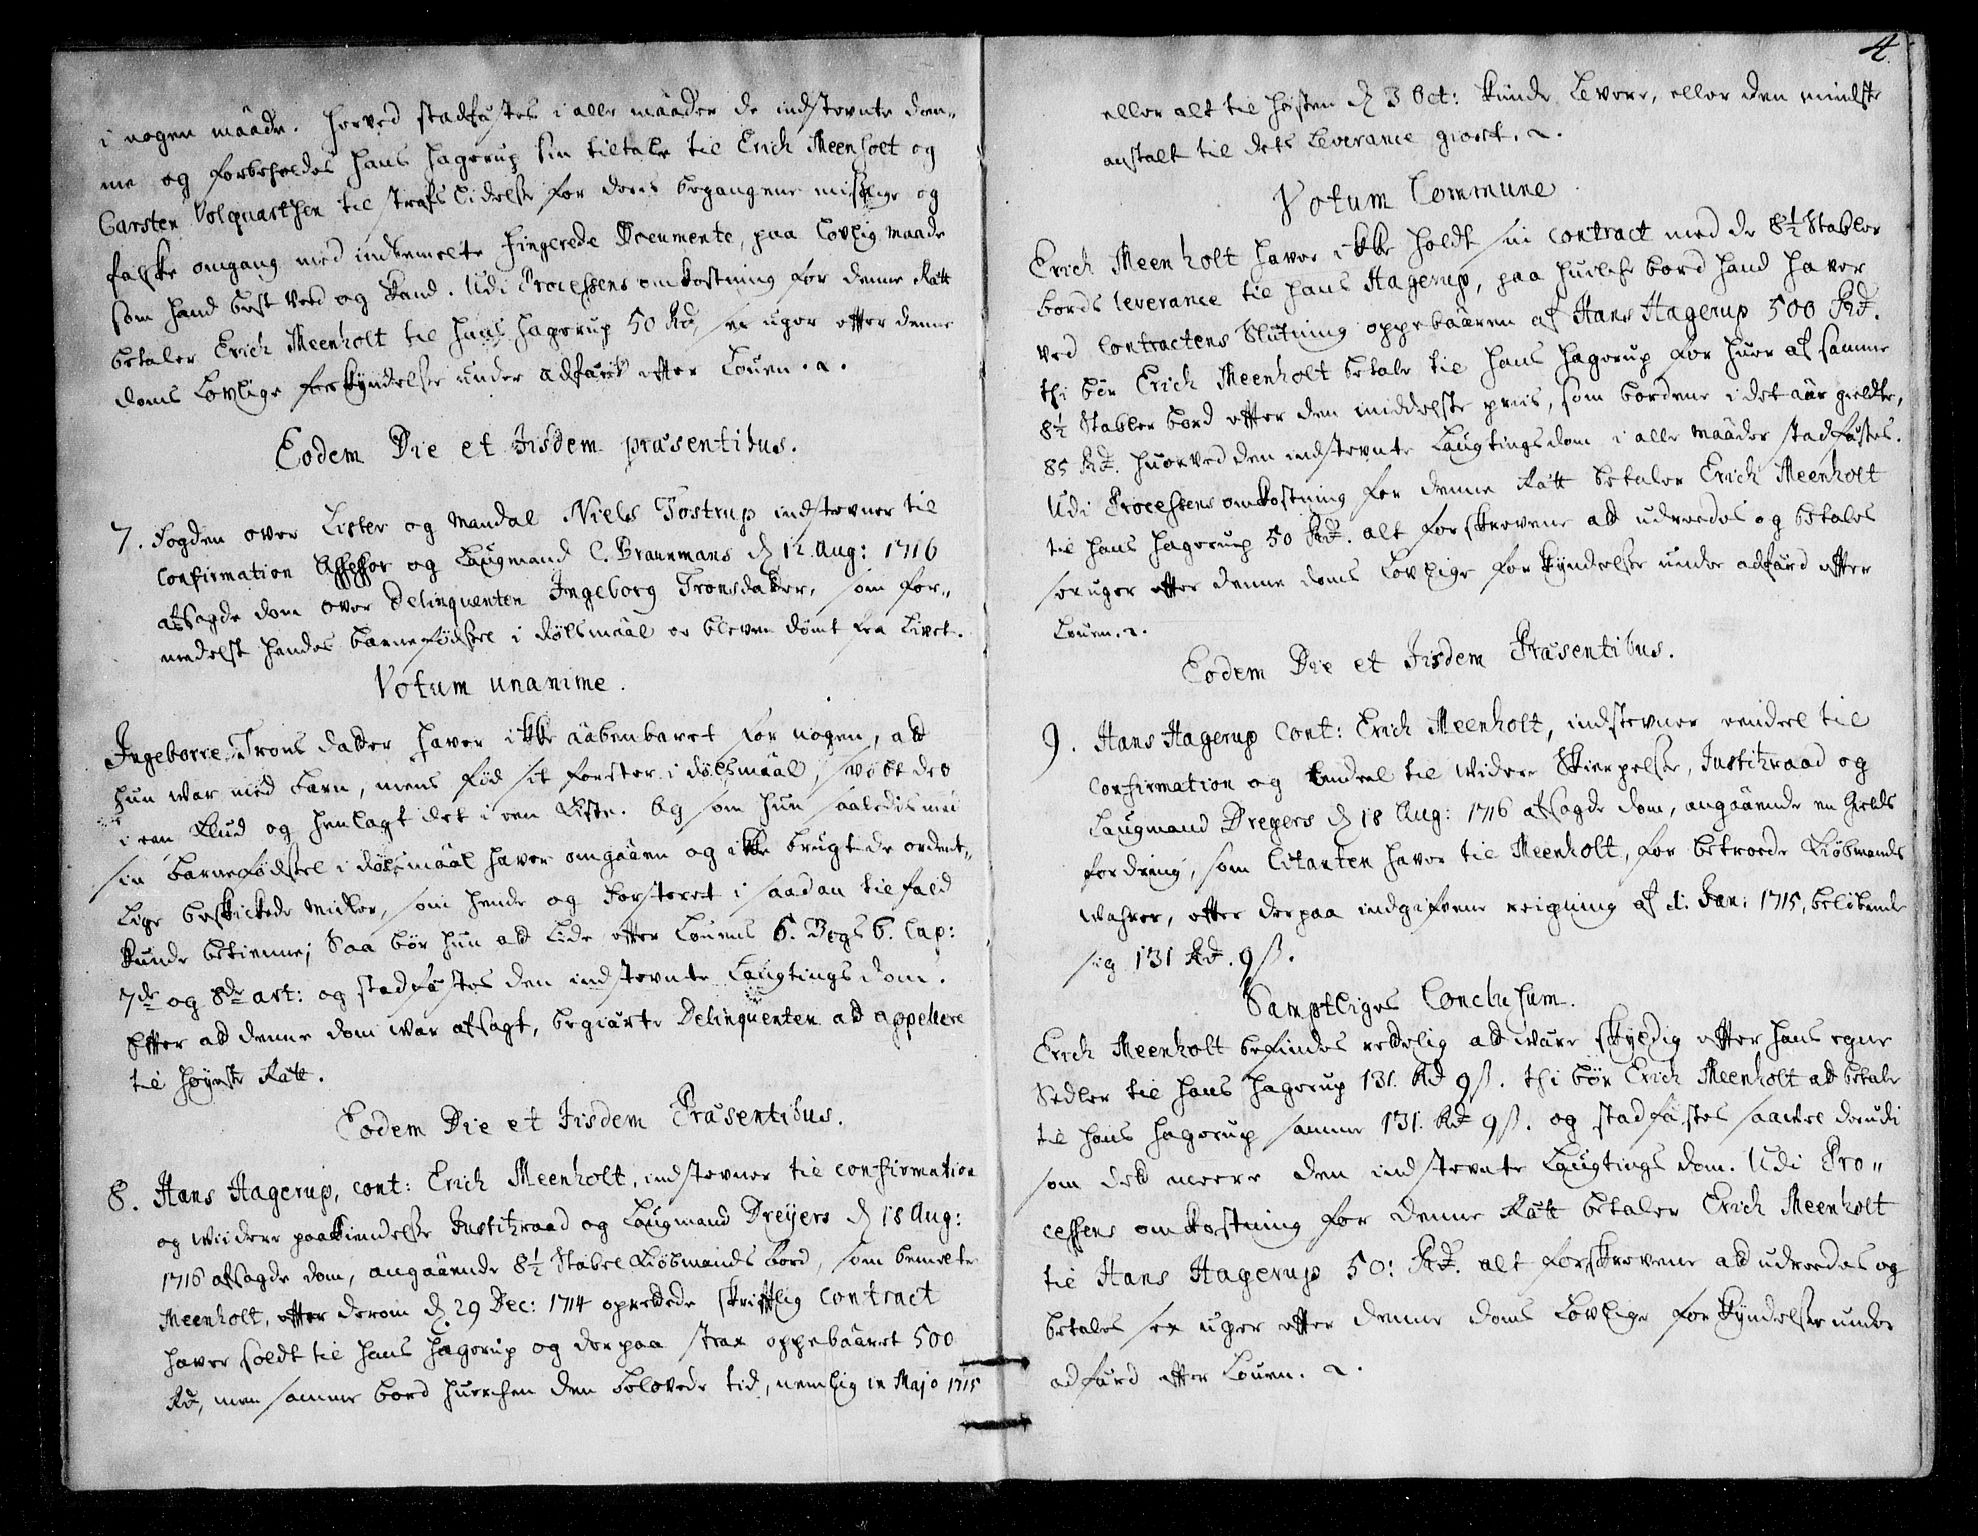 i nogen maade. Herved stadfästes i alle maader de indstevnte dom„
me og forbeholdes Hans Hagerup sin tiltale til Erich Meenholt og
Carsten Volquartsen til straf lidelse for deris begangene mislige og
falske omgang med indbemelte fingerede Documente, paa lovlig maade
som hand best ved og kand. Udi Processens omkostning for denne Rätt
betaler Erich Meenholt til Hans Hagerup 50 Rd sex uger efter denne
doms lovlige forkyndelse under adfärd efter Louen.
Eodem Die et Iisdem præsentibus.
7. Fogden over Lister og Mandal Niels Tostrup indstevner til
Confirmation Assessor og Laugmand C. Braunmans d 12. Aug: 1716
afsagde dom over Delinquenten Ingeborg Tronsdatter, som for„
medelst hendes barnefödsel i dölsmaal er bleven dömt fra Livet.
Votum unanime.
Ingeborre Trons datter haver ikke aabenbaret for nogen, att
hun war med barn, mens föd sit foster i dölsmaal, svöbt det
i een klud og henlagt det i een Kiste. Og som hun saaledis med
sin barnefödsel i dölsmaal haver omgaaen og ikke brugt de ordent„
lige beskickede midler, som hende og fosteret i saadan tilfald
kunde betienne; Saa bör hun att lide efter Louens 6. Bogs 6. Cap:
7de og 8de art: og stadfästes den indstevnte Laugtings dom.
Efter att denne dom war afsagt, begiärte Delinquenten att appellere
til Höyeste Rätt.
Eodem Die et Iisdem Præsentibus.
8. Hans Hagerup, cont: Erich Meenholt, indstevner til confirmation
og widere paakiendelse Justitzraad og Laugmand Dreyers d 18 Aug:
1716 afsagde dom, angaaende 8½ Stabel Kiöbmands bord, som bemelte
Meenholt, efter derom d 29 Dec: 1714 oprettede skriftlig Contract
haver soldt til Hans Hagerup og derpaa strax oppebaaret 500
Rd, men samme bord huerchen den belovede tid, nemlig in Majo 1715
4.
eller alt til hösten d 3 Oct: kunde levere, eller den mindste
anstalt til dets leverance giort.
Votum Commune.
Erich Meenholt haver ikke holdt sin contract med de 8½ Stabler
bords leverance til Hans Hagerup, paa huilche bord hand haver
ved Contractens Slutning oppebaaren af Hans Hagerup 500 Rd.
thi bör Erich Meenholt betale til Hans Hagerup for huer af samme
8½ Stabler bord efter den middelste priis, som bordene i det aar gieldte,
85 Rd. Huorved den indstevnte Laugtings dom i alle maader stadfästes.
Udi Processens omkostning for denne Rätt betaler Erich Meenholt
til Hans Hagerup 50 Rd. alt forskrevene att udredes og betales
sex uger efter denne doms lovlige forkyndelse under adfärd efter
Louen.
Eodem Die et Iisdem Præsentibus.
9. Hans Hagerup Cont: Erich Meenholt, indstevner eendeel til
Confirmation og eendeel til widere Skierpelse, Justitzraad og
Laugmand Dreyers d 18 Aug: 1716 afsagde dom, angaaende en Gields
fordring, som Citanten haver til Meenholt, for betroede Kiöbmands
wahrer, efter derpaa indgifvene reigning af d. Jan: 1715, belöbende
sig 131 Rd. 9 ß.
Samptliges Conclusum.
Erich Meenholt befindes rettelig att være skyldig efter hans egne
Sedler til Hans Hagerup 131. Rd 9 ß. thi bör Erich Meenholt att betale
til Hans Hagerup samme 131. Rd 9 ß. og stadfästes saavel derudi
som det meere den indstevnte Laugtings dom. Udi Pro„
cessens omkostning for denne Rätt betaler Erich Meenholt
til Hans Hagerup 50: Rd. alt forskrevene att udredes og
betales sex uger efter denne doms lovlige forkyndelse under
adfärd efter Louen.